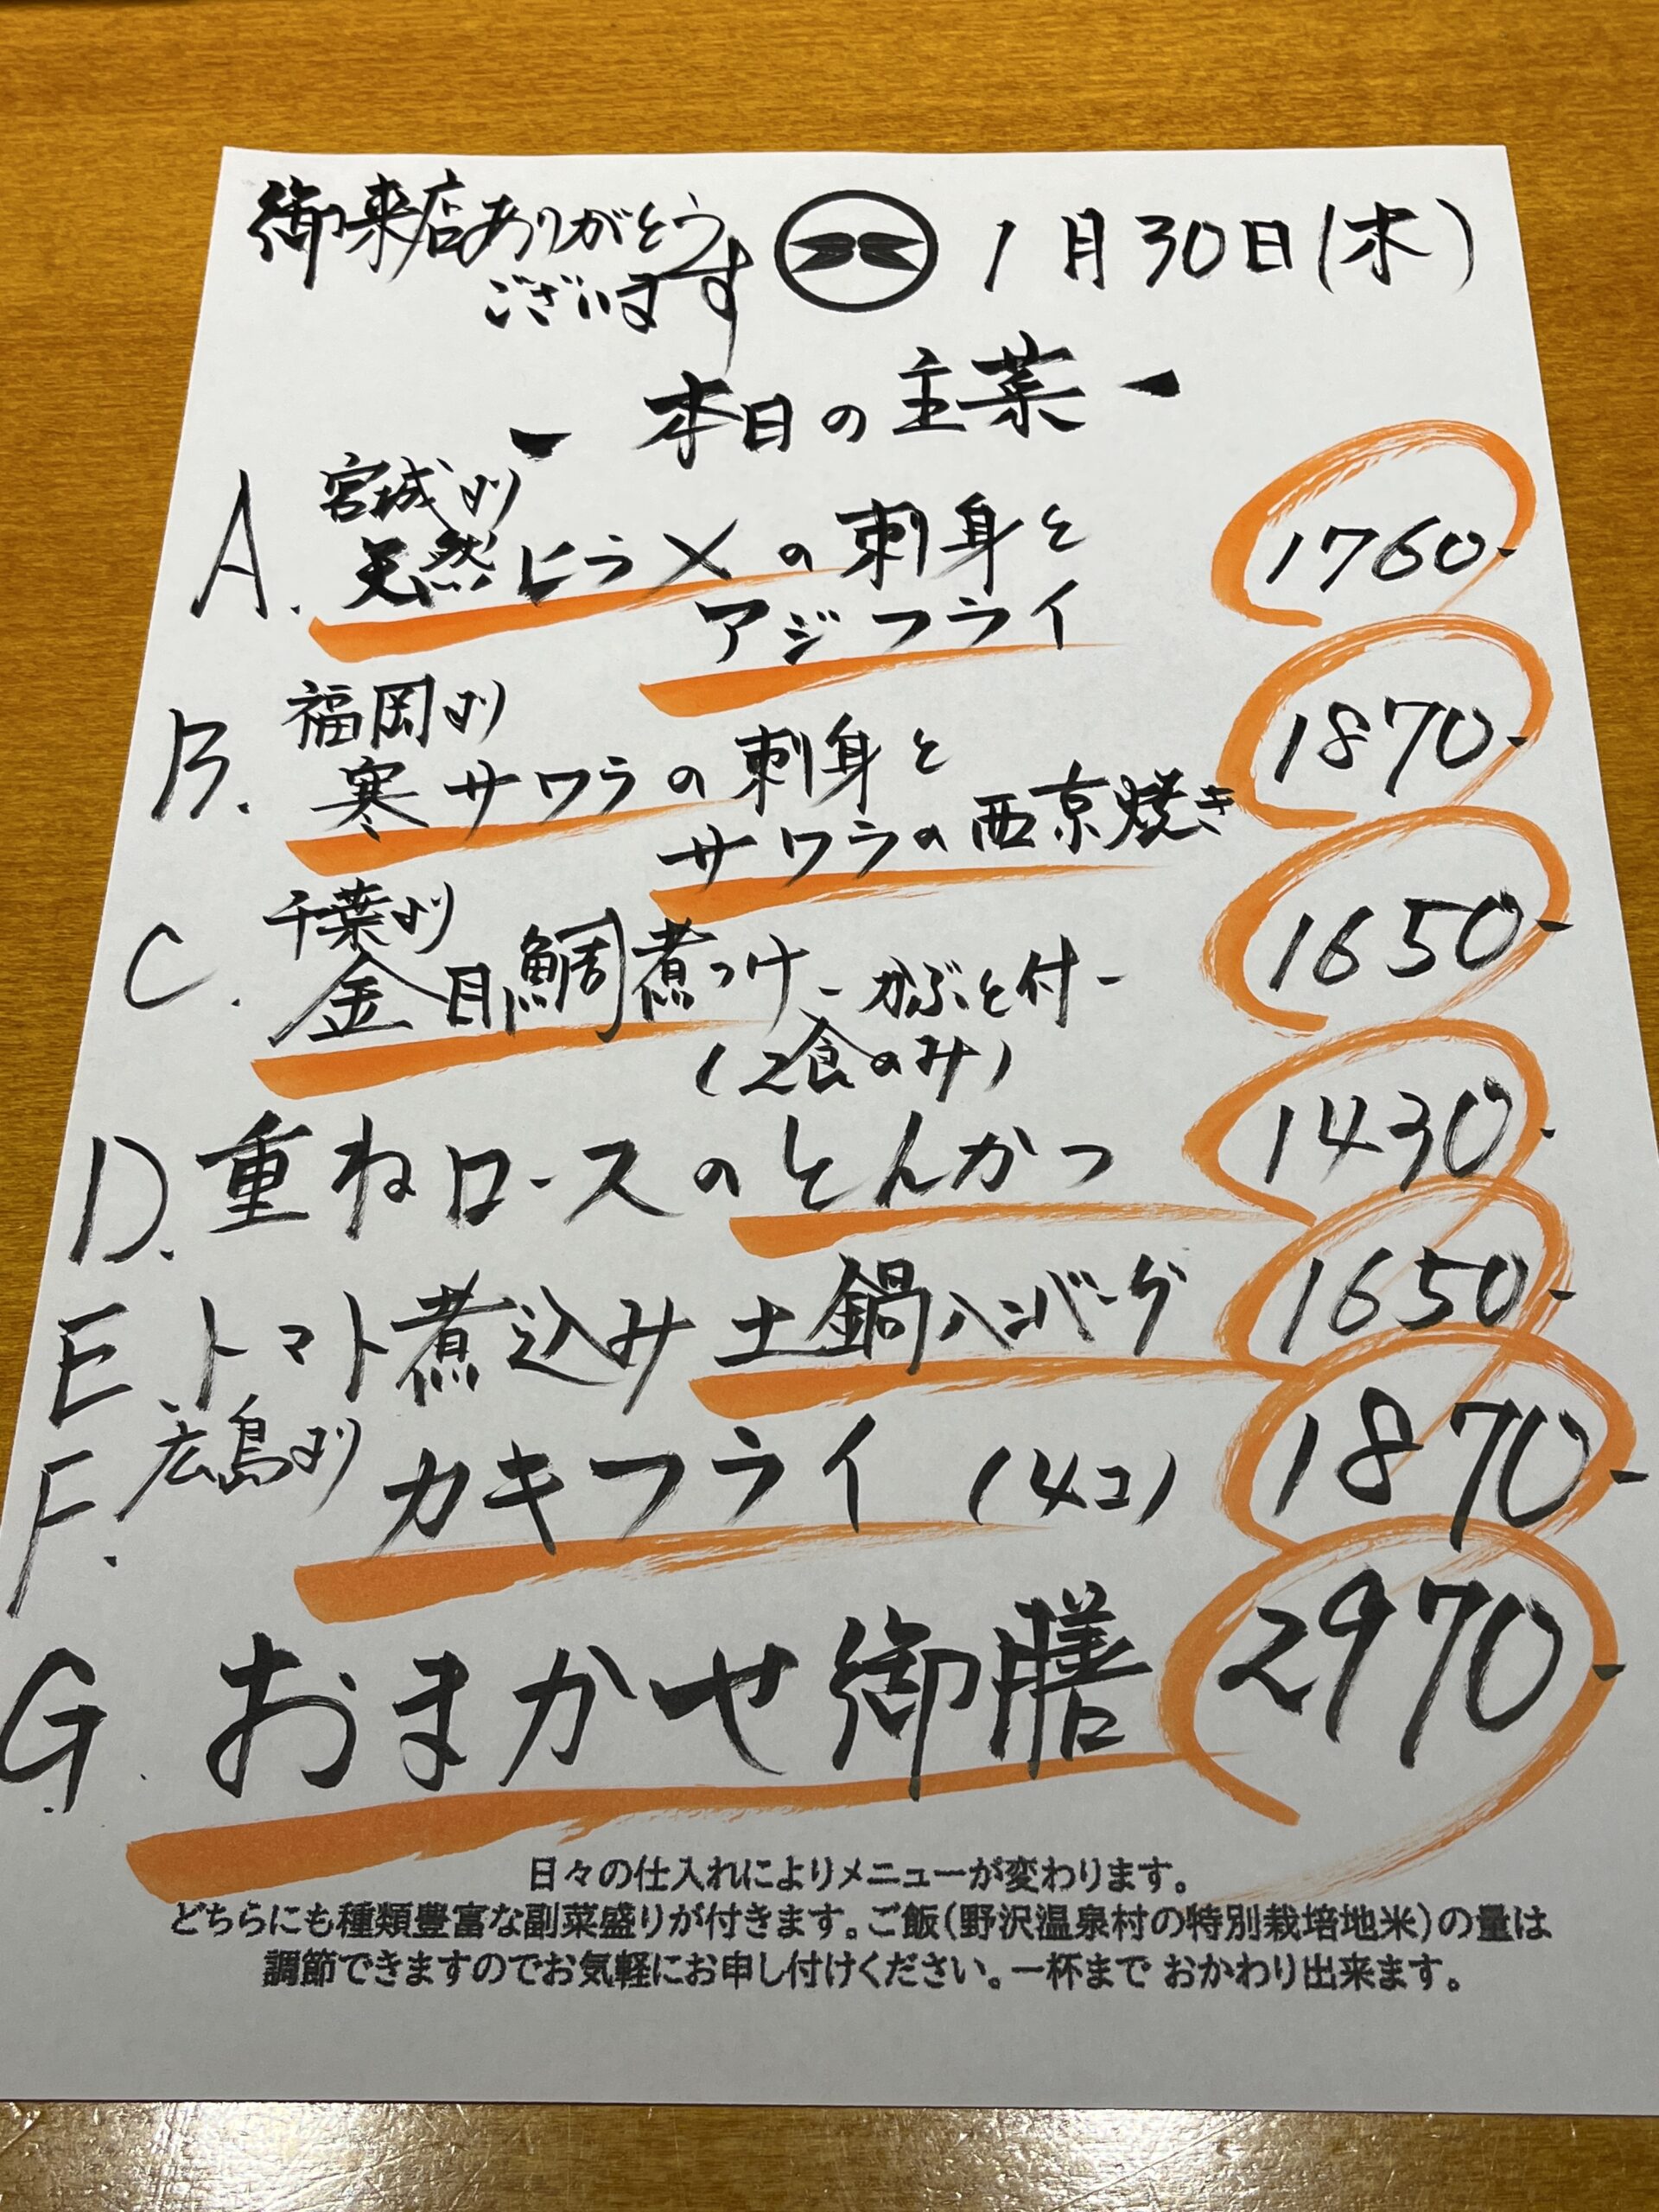 御来店ありがとう
ございます
1月30日(木)
- 本日の主菜 -
A. 宮城より
天然ヒラメの刺身と
アジフライ
1760-
B. 福岡より
寒サワラの刺身と
サワラの西京焼き
1870-
C. 千葉より
金目鯛煮つけ -かぶと付-
(2食のみ)
1650-
D. 重ねロースのとんかつ 1430-
E. トマト煮込み土鍋ハンバーグ 1650-
F. 広島より
カキフライ (4コ) 1870-
G. おまかせ御膳 2970-
日々の仕入れによりメニューが変わります。
どちらにも種類豊富な副菜盛りが付きます。ご飯(野沢温泉村の特別栽培地米)の量は
調節できますのでお気軽にお申し付けください。一杯まで おかわり出来ます。